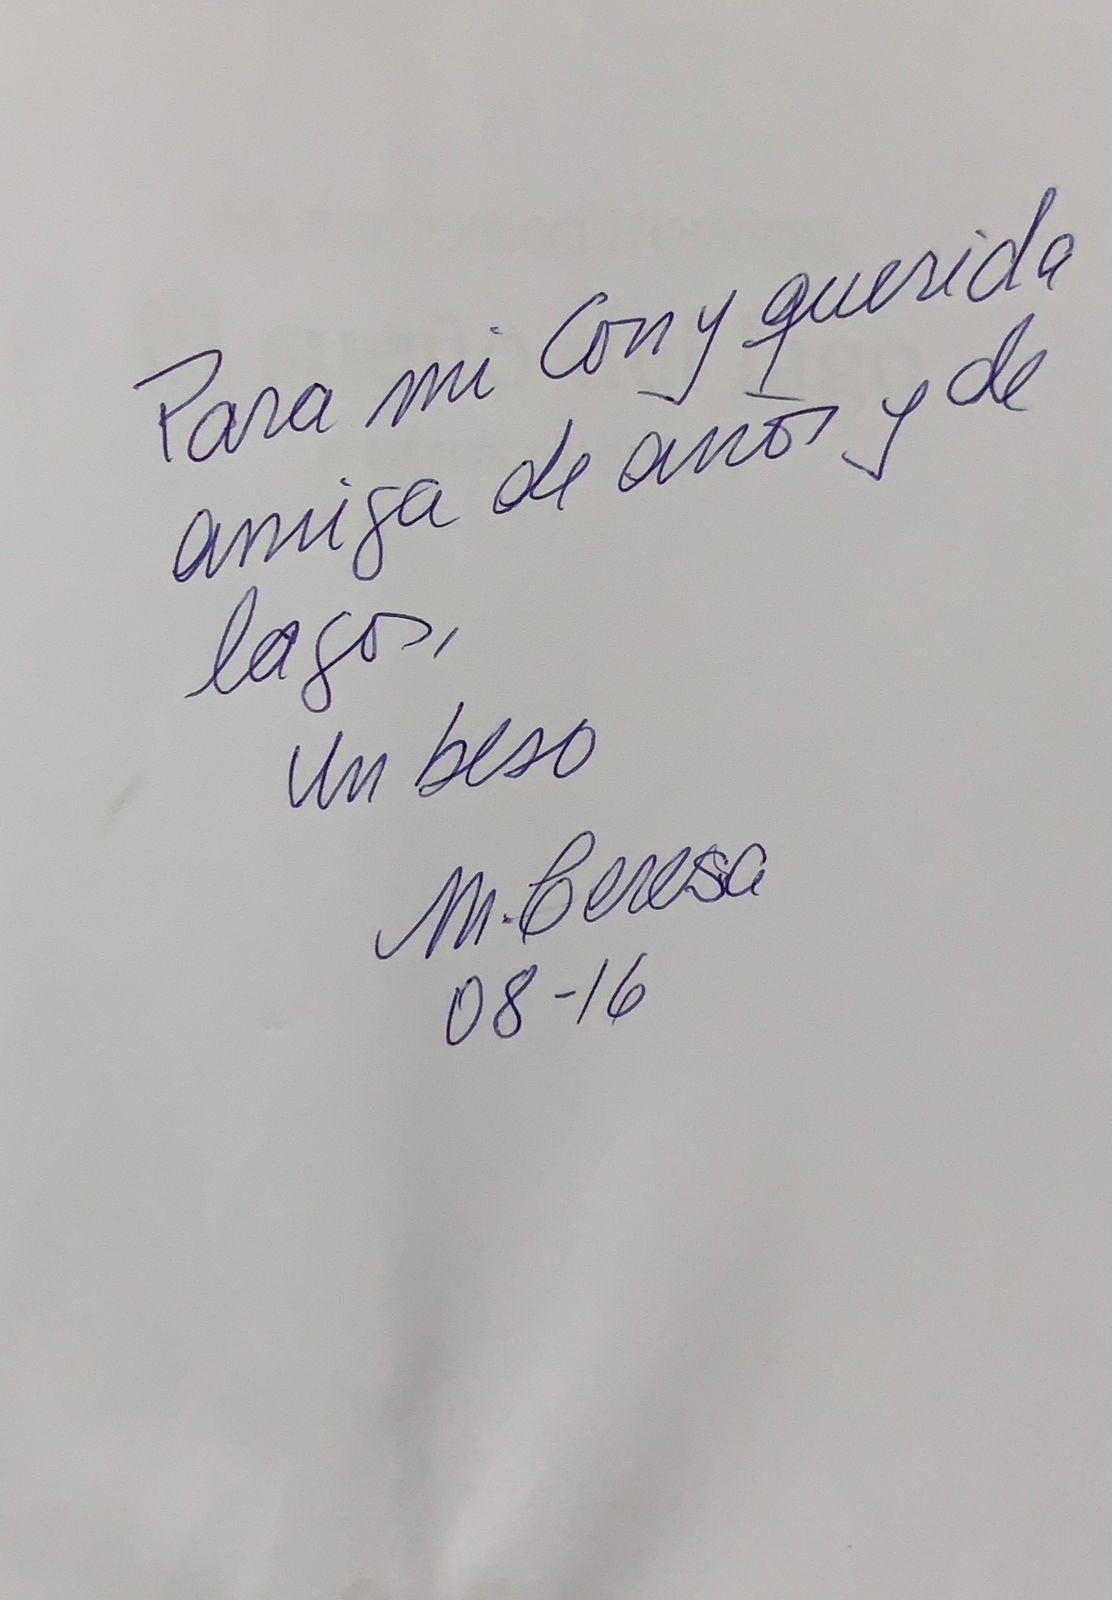 Para mi Cony querida
amiga de años y de
lagos,
un beso
M. Teresa
08-16